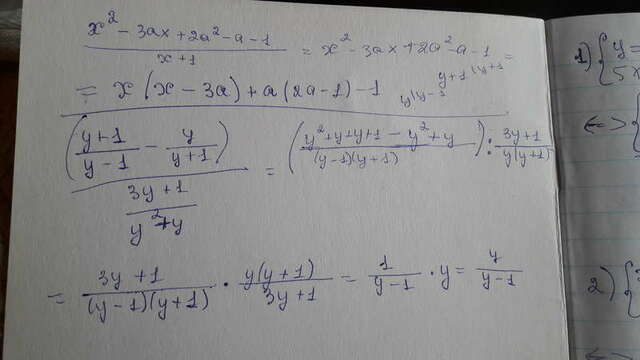 x² - 3ax + 2a² - a - 1 / x+1 = x² - 3ax + 2a² - a - 1 =
= x(x - 3a) + a(2a - 1) - 1
(y+1 / y-1 - y / y+1) / (3y+1 / y²+y) = (y²+y+y+1 - y²+y / (y-1)(y+1)) : (3y+1 / y(y+1)) =
= 3y+1 / (y-1)(y+1) · y(y+1) / 3y+1 = 1 / y-1 · y = y / y-1
1) { y =
<=>
2) {
<=>